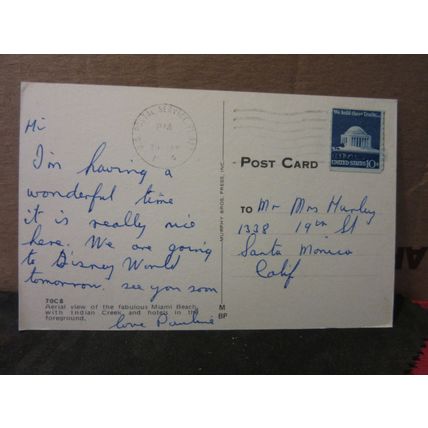 Hi
I'm having a
wonderful time
it is really nice
here. We are going
to Disney World
tomorrow. see you soon
love Pauline
70C8
Aerial view of the fabulous Miami Beach
with Indian Creek and hotels in the
foreground.
U.S. POSTAL SERVICE
PM
MURPHY BROS. PRESS, INC.
M
BP
We hold these Truths...
UNITED STATES 10c
POST CARD
TO Mr Mrs Hurley
1338 19th St
Santa Monica
Calif